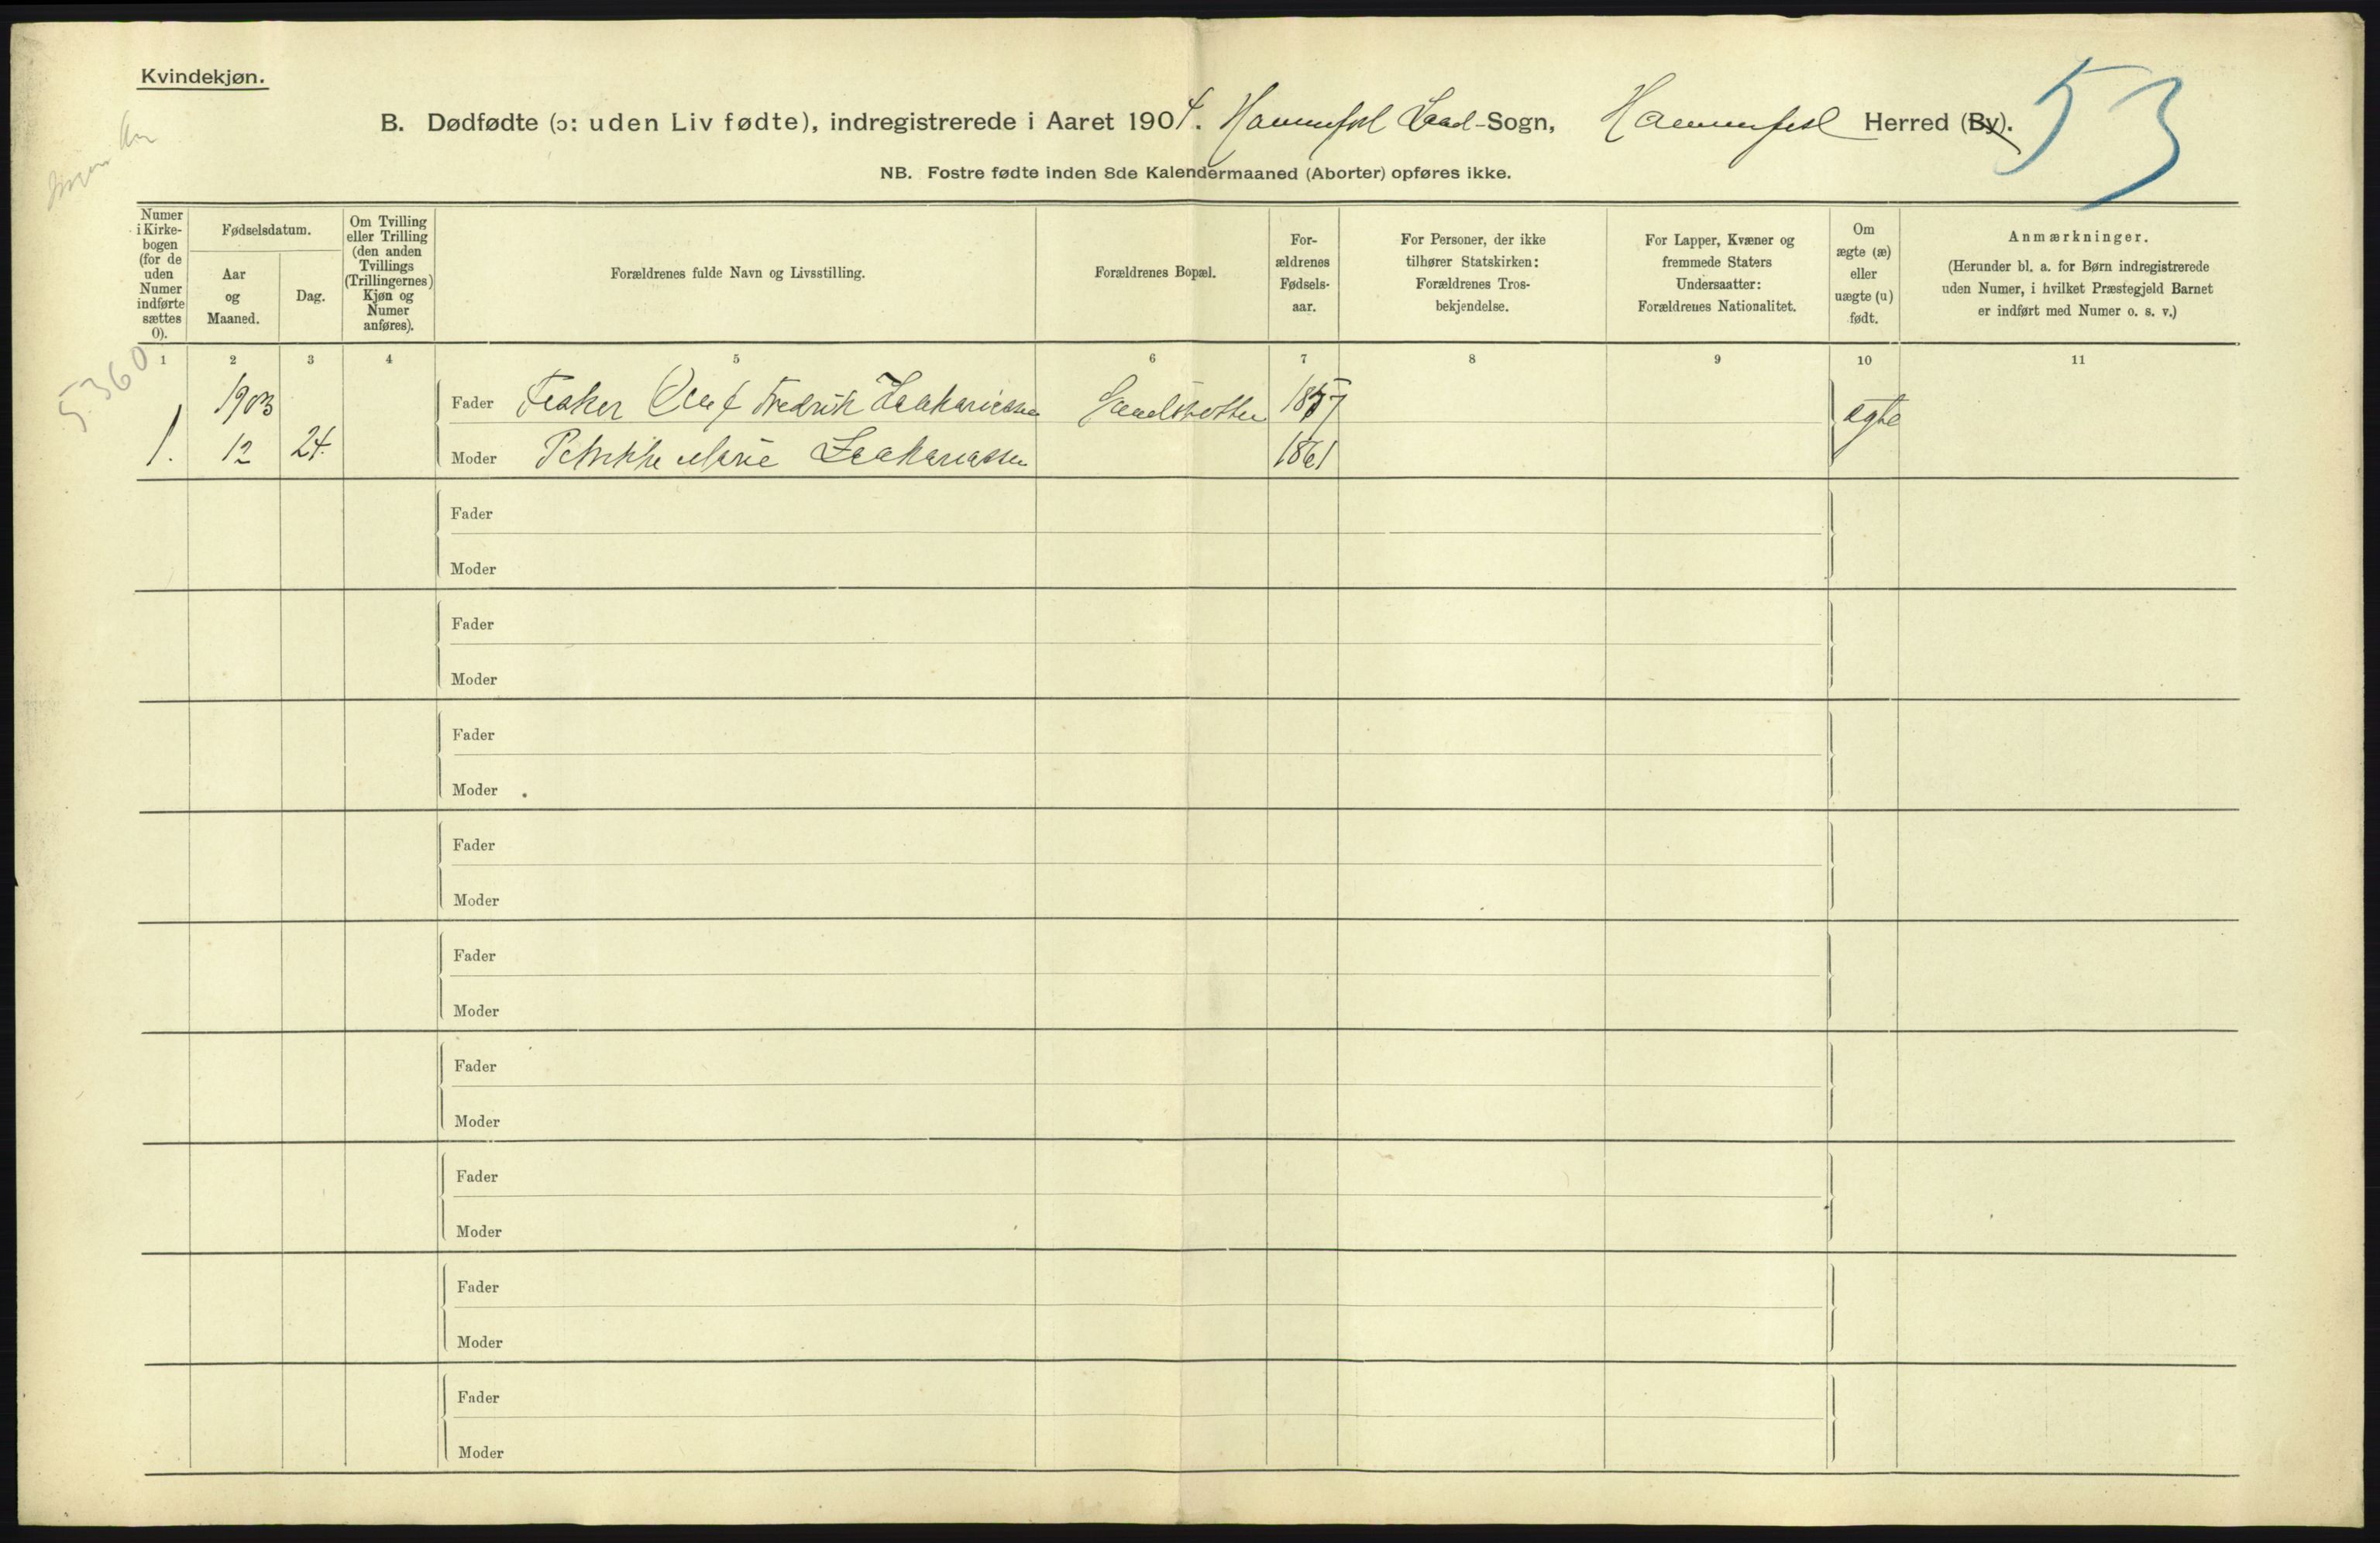 Kvindekjøn.
53
B. Dødfødte (ɔ: uden Liv fødte), indregistrerede i Aaret 1904. Hammerfest Land-Sogn, Hammerfest Herred (By).
NB. Fostre fødte inden 8de Kalendermaaned (Aborter) opføres ikke.
Numer i Kirke-bogen (for de uden Numer indførte sættes 0).
Fødselsdatum.
Aar og Maaned.
Dag.
Om Tvilling eller Trilling (den anden Tvillings (Trillingernes) Kjøn og Numer anføres).
Forældrenes fulde Navn og Livsstilling.
Forældrenes Bopæl.
For-ældrenes Fødsels-aar.
For Personer, der ikke tilhører Statskirken: Forældrenes Tros-bekjendelse.
For Lapper, Kvæner og fremmede Staters Undersaatter: Forældrenes Nationalitet.
Om ægte (æ) eller uægte (u) født.
Anmærkninger.
(Herunder bl. a. for Børn indregistrerede uden Numer, i hvilket Præstegjeld Barnet er indført med Numer o. s. v.)
1 2 3 4 5 6 7 8 9 10 11
5360
1903 Fader Fisker Oluf Fredrik Zakariassen 1857 ægte
1. 12 24. Moder Petrikke Marie Zakariassen 1861
Fader
Moder
Fader
Moder
Fader
Moder
Fader
Moder
Fader
Moder
Fader
Moder
Fader
Moder
Fader
Moder
Fader
Moder